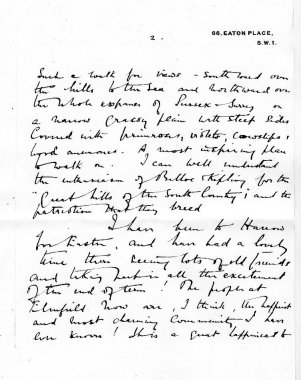 66, EATON PLACE,
S.W.1.
2.
Such a walk for views - southward over
the hills to the Sea and northward over
the whole expanse of Sussex - Surrey on
a narrow grassy plain with steep sides
covered with primroses, violets, cowslips &
wood anemones. A most inspiring place
to walk on. I can well understand
the enthusiasm of Belloc & Kipling for the
"Great hills of the South Country"; and the
patriotism that they breed
I have been to Harrow
for Easter, and have had a lovely
time there seeing lots of old friends
and taking part in all the excitement
of the end of term! The people at
Elmfield now are, I think, the happiest
and most charming community I have
ever known! It is a great happiness to